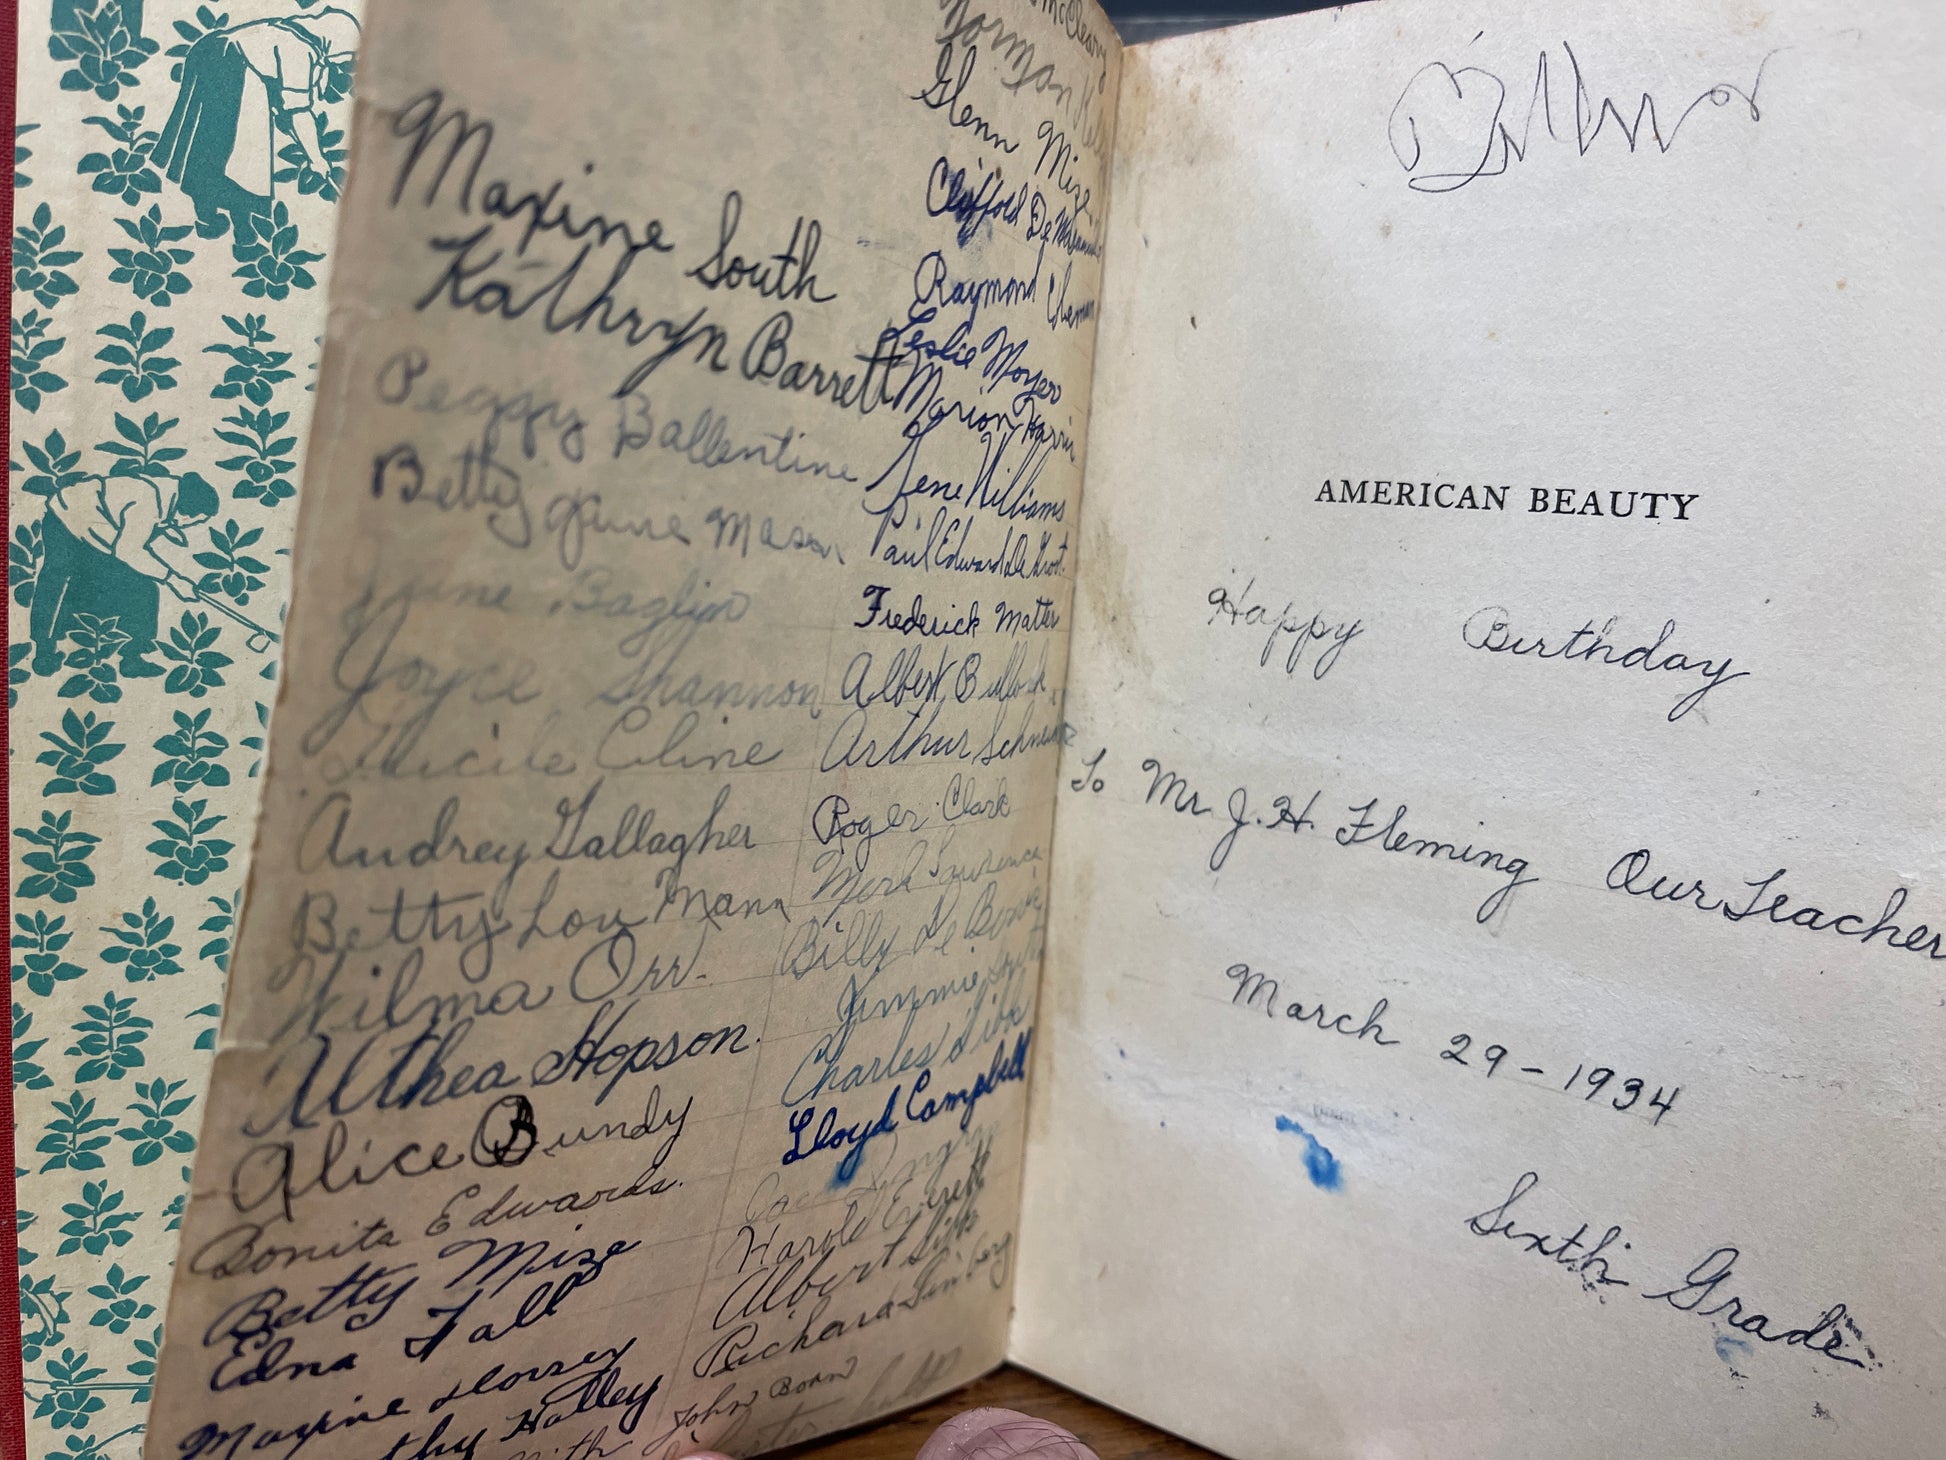 Maxine South
Kathryn Barrett
Peggy Ballentine
Betty June Mason
June Baglin
Joyce Shannon
Lucile Cline
Audrey Gallagher
Betty Lou Mann
Wilma Orr.
Althea Hopson.
Alice Bundy
Bonita Edwards.
Betty Mize
Edna Fall
Maxine Dorsey
Halley
McCleary
Norman
Glenn Mize
Clifford De
Raymond
Leslie Moyer
Marion Harris
Gene Williams
Paul Edward De Groot.
Frederick Matter
Albert Bullock
Arthur
Roger Clark
Lawrence
Billy De
Jimmie
Charles
Lloyd Campbell
Harold Everett
Albert
Richard
John Born
AMERICAN BEAUTY
Happy Birthday
To Mr J. H. Fleming Our Teacher
March 29-1934
Sixth Grade